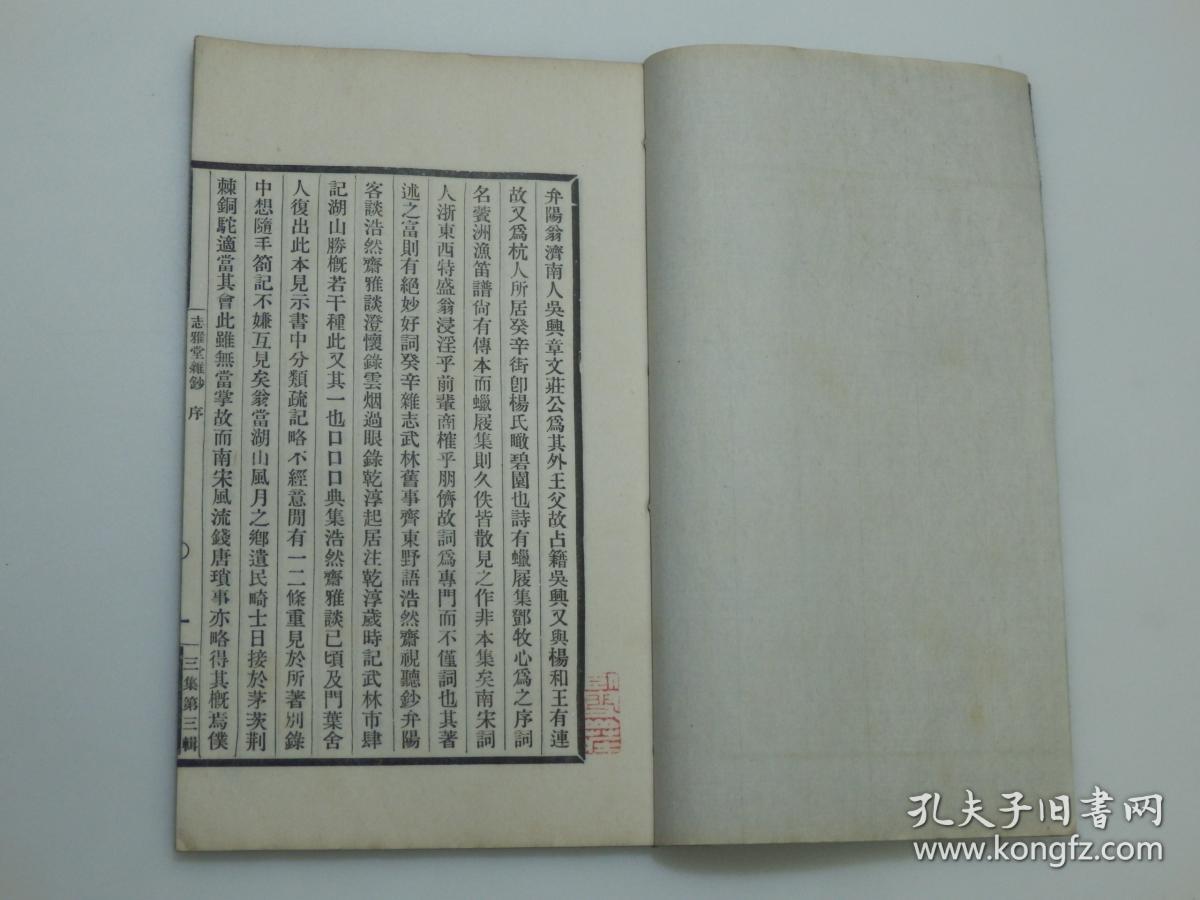 弁陽翁濟南人吳興章文莊公爲其外王父故占籍吳興又與楊和王有連
故又爲杭人所居癸辛街卽楊氏瞰碧園也詩有蠟屐集鄧牧心爲之序詞
名薲洲漁笛譜尙有傳本而蠟屐集則久佚皆散見之作非本集矣南宋詞
人浙東西特盛翁浸淫乎前輩商榷乎朋儕故詞爲專門而不僅詞也其著
述之富則有絕妙好詞癸辛雜志武林舊事齊東野語浩然齋視聽鈔弁陽
客談浩然齋雅談澄懷錄雲烟過眼錄乾淳起居注乾淳歲時記武林市肆
記湖山勝槪若干種此又其一也口口口典集浩然齋雅談已頃及門葉舍
人復出此本見示書中分類疏記略不經意閒有一二條重見於所著別錄
中想隨手箚記不嫌互見矣翁當湖山風月之鄕遺民畸士日接於茅茨荆
棘銅駝適當其會此雖無當掌故而南宋風流錢唐瑣事亦略得其槪焉僕
志雅堂雜鈔 序
一
三集第三輯
孔夫子旧书网
www.kongfz.com